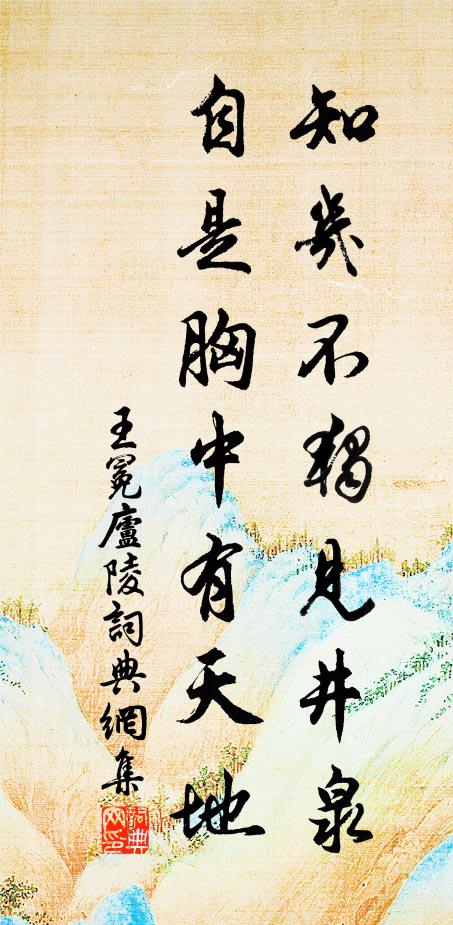 知幾不獨見井泉
自是胸中有天地
王冕廬陵詞典網集
詞典網印